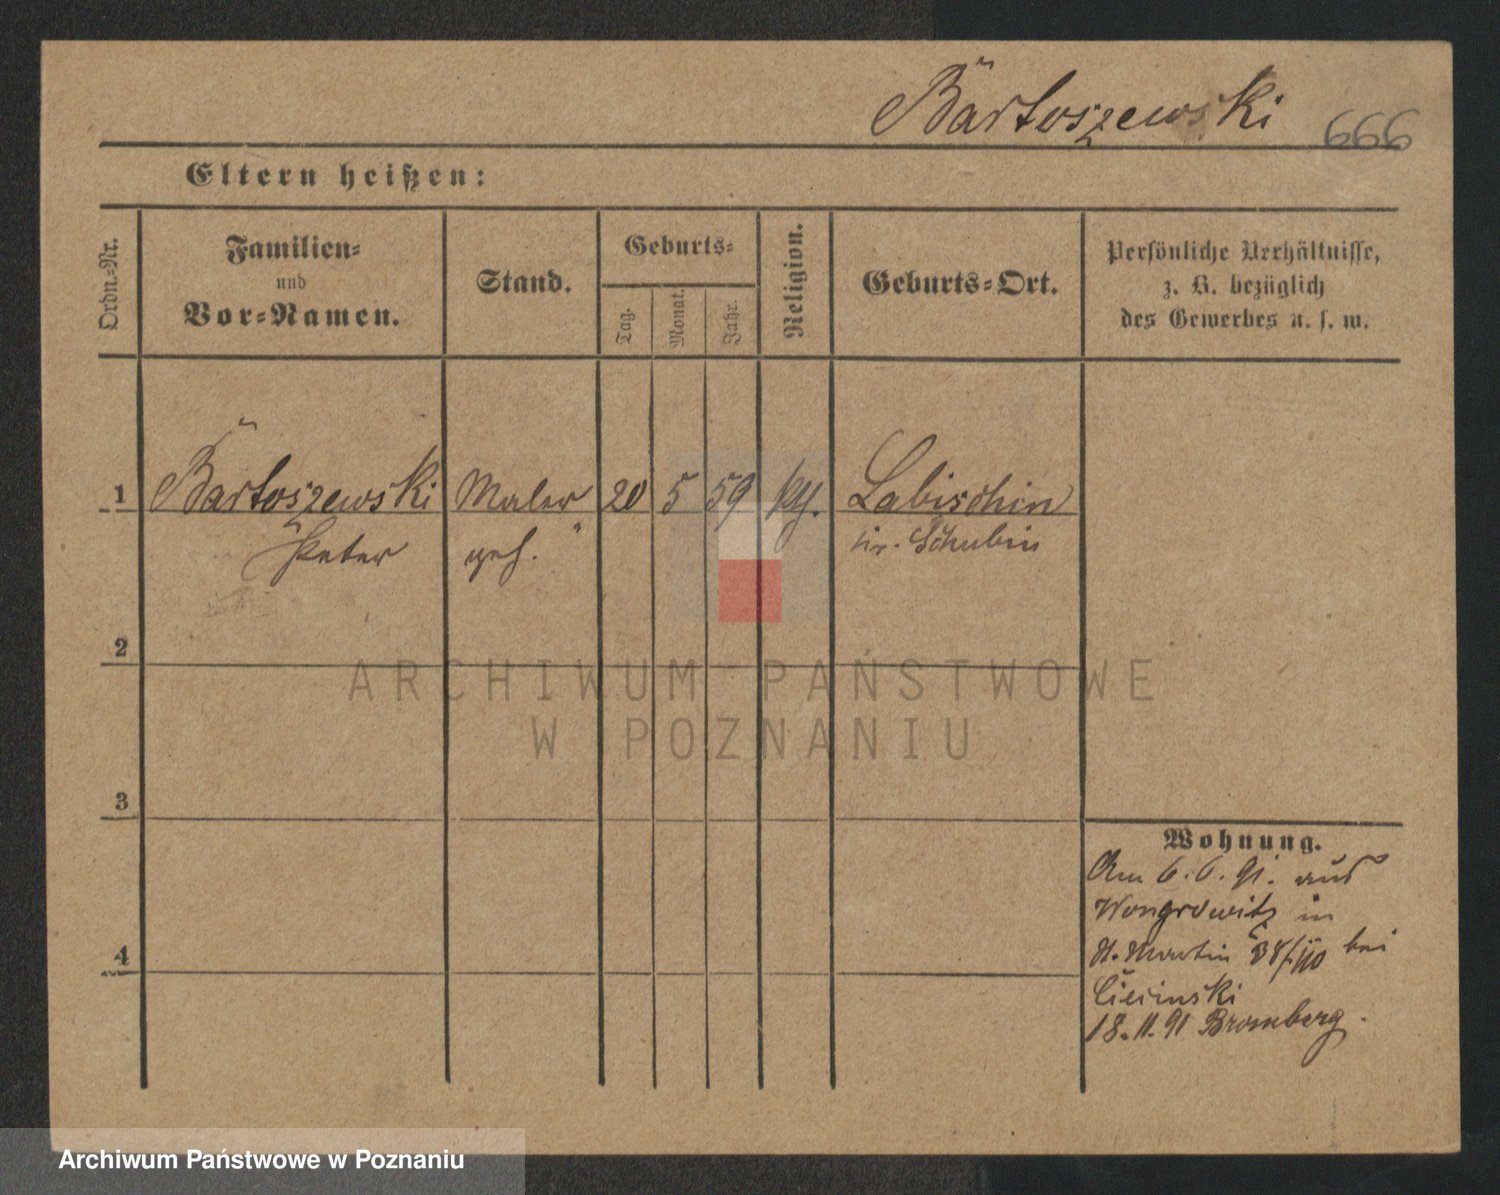 Bartoszewski 666
Eltern heißen:
Ordn.-Nr.
Familien-
und
Vor-Namen.
Stand.
Geburts-
Tag.
Monat.
Jahr.
Religion.
Geburts-Ort.
Persönliche Verhältnisse,
z. B. bezüglich
des Gewerbes u. s. w.
1 Bartoszewski Maler 20 5 59 Labischin
Peter geh. Kr. Schubin
2
3
4
Wohnung.
Am 6.6.91. aus
Wongrowitz in
St. Martin bei
18.11.91 Bromberg.
ARCHIWUM PAŃSTWOWE
W POZNANIU
Archiwum Państwowe w Poznaniu